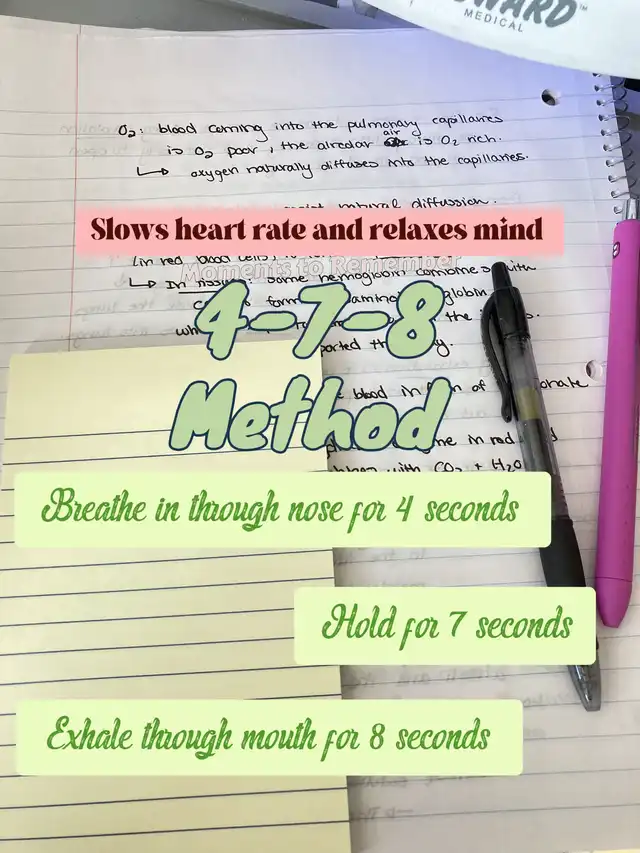 MEDICAL
O₂: blood coming into the pulmonary capillaries
is O₂ poor, the alveolar air is O₂ rich.
↳ oxygen naturally diffuses into the capillaries.
natural diffusion.
Slows heart rate and relaxes mind
(in red blood cells,
Moments to Remember
↳ In some hemoglobin combines with
4-7-8
the
Method
blood in of
in red
with CO₂ + H₂O
Breathe in through nose for 4 seconds
Hold for 7 seconds
Exhale through mouth for 8 seconds